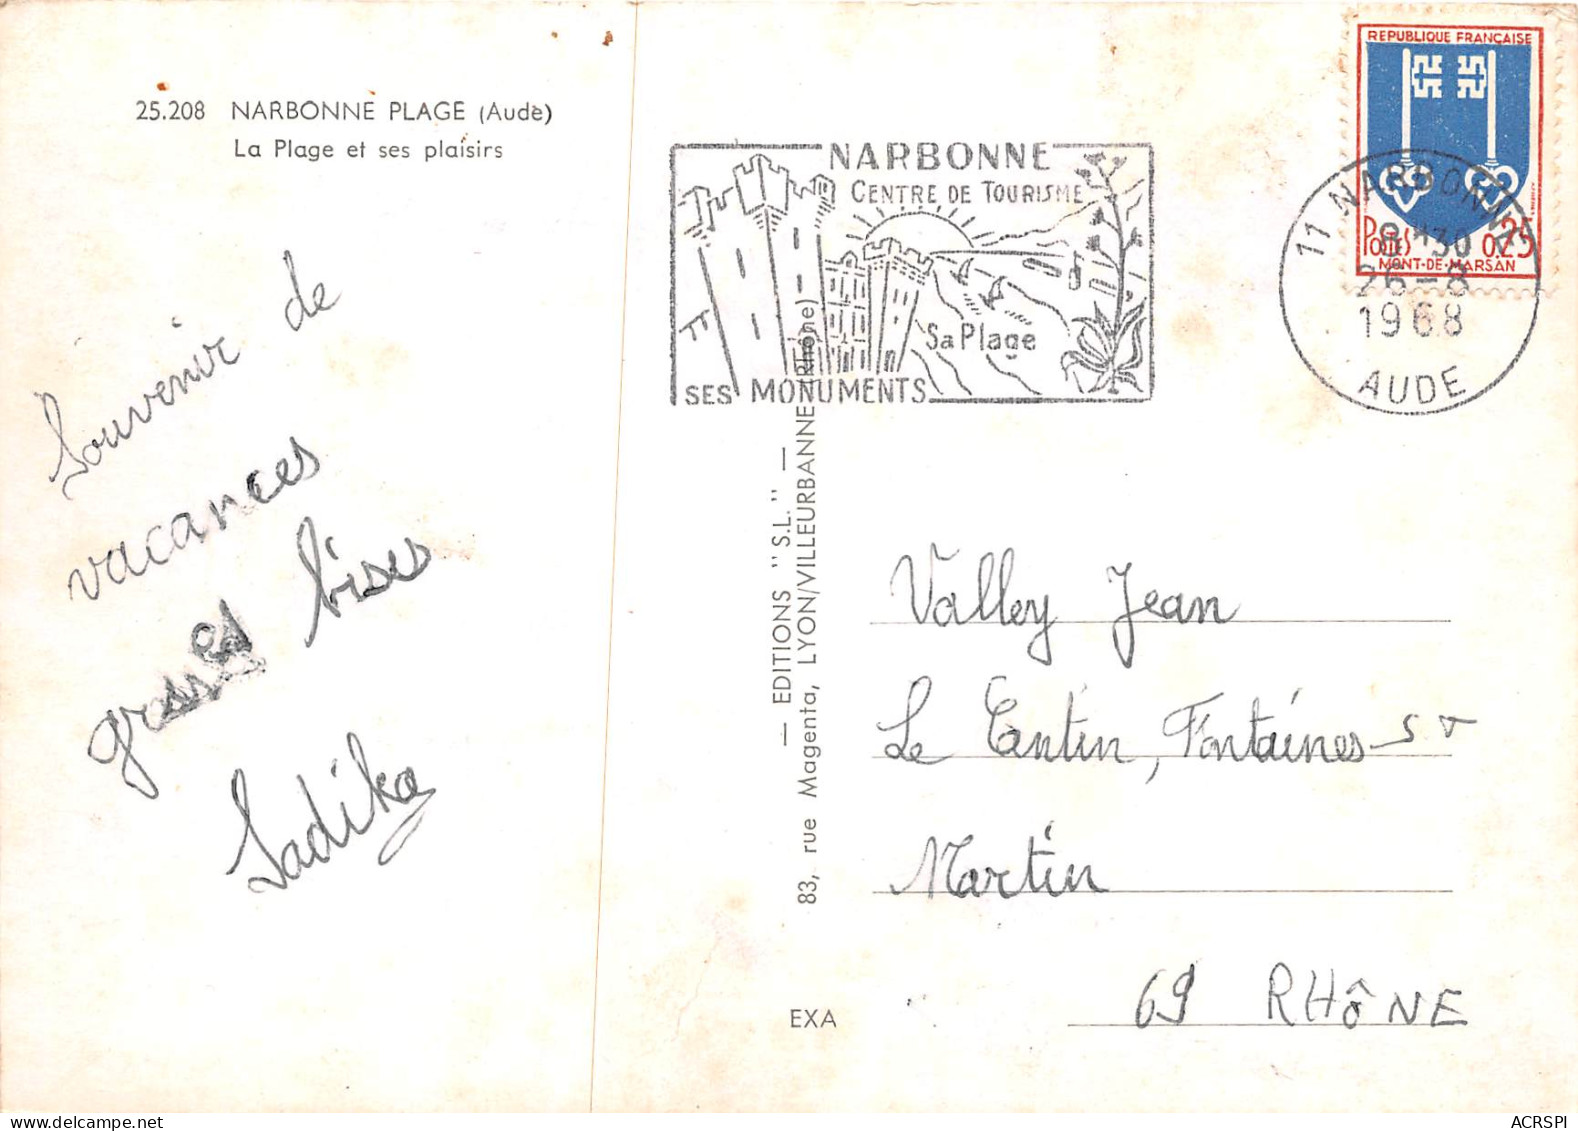 25.208 NARBONNE PLAGE (Aude)
La Plage et ses plaisirs
Souvenir de
vacances
grosses bises
Sadika
NARBONNE
CENTRE DE TOURISME
Sa Plage
SES MONUMENTS
REPUBLIQUE FRANÇAISE
POSTES 0,25
MONT-DE-MARSAN
11 NARBONNE
8H30
26-8
1968
AUDE
— EDITIONS "S.L." —
83, rue Magenta, LYON/VILLEURBANNE (Rhône)
EXA
Valley Jean
Le Cantin, Fontaines S T
Martin
69 RHôNE
ACRSPI